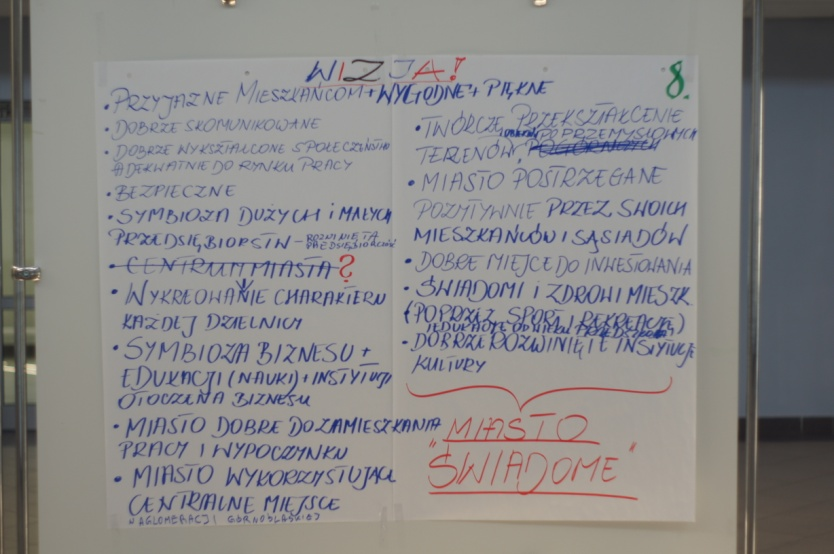 WIZJA!
8.
• PRZYJAZNE MIESZKAŃCOM + WYGODNE + PIĘKNE
• DOBRZE SKOMUNIKOWANE
• DOBRZE WYKSZTAŁCONE SPOŁECZEŃSTWO
ADEKWATNIE DO RYNKU PRACY
• BEZPIECZNE
• SYMBIOZA DUŻYCH i MAŁYCH
PRZEDSIĘBIORSTW – ROZWINIĘTA
PRZEDSIĘBIORCZOŚĆ
• CENTRUM MIASTA ?
• WYKREOWANIE CHARAKTERU
KAŻDEJ DZIELNICY
• SYMBIOZA BIZNESU +
EDUKACJI (NAUKI) + INSTYTUCJI
OTOCZENIA BIZNESU
• MIASTO DOBRE DO ZAMIESZKANIA
PRACY I WYPOCZYNKU
• MIASTO WYKORZYSTUJĄCE
CENTRALNE MIEJSCE
W AGLOMERACJI GÓRNOŚLĄSKIEJ
• TWÓRCZE PRZEKSZTAŁCENIE
POPRZEMYSŁOWYCH
TERENÓW, POGÓRNICZYCH
• MIASTO POSTRZEGANE
POZYTYWNIE PRZEZ SWOICH
MIESZKAŃCÓW I SĄSIADÓW
• DOBRE MIEJCE DO INWESTOWANIA
• ŚWIADOMI I ZDROWI MIESZK.
(POPRZEZ SPORT I REKREACJĘ)
I EDUKACJĘ OD WIEKU PRZEDSZK.
• DOBRZE ROZWINIĘTE INSTYTUCJE
KULTURY
"MIASTO
ŚWIADOME"